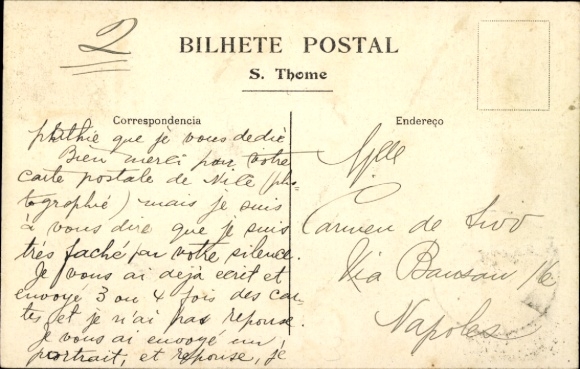 2
BILHETE POSTAL
S. Thome
Correspondencia
Endereço
que je vous dedie
Bien merci pour votre
carte postale de Nile (pho-
tographie) mais je suis
à vous dire que je suis
très faché par votre silence.
Je vous ai dejà ecrit et
envoyé 3 ou 4 fois des car-
tes et je n'ai pas reponse.
je vous ai envoyé un
portrait, et reponse, je
Mlle
Carmen de
Via Bausan 16
Napoles